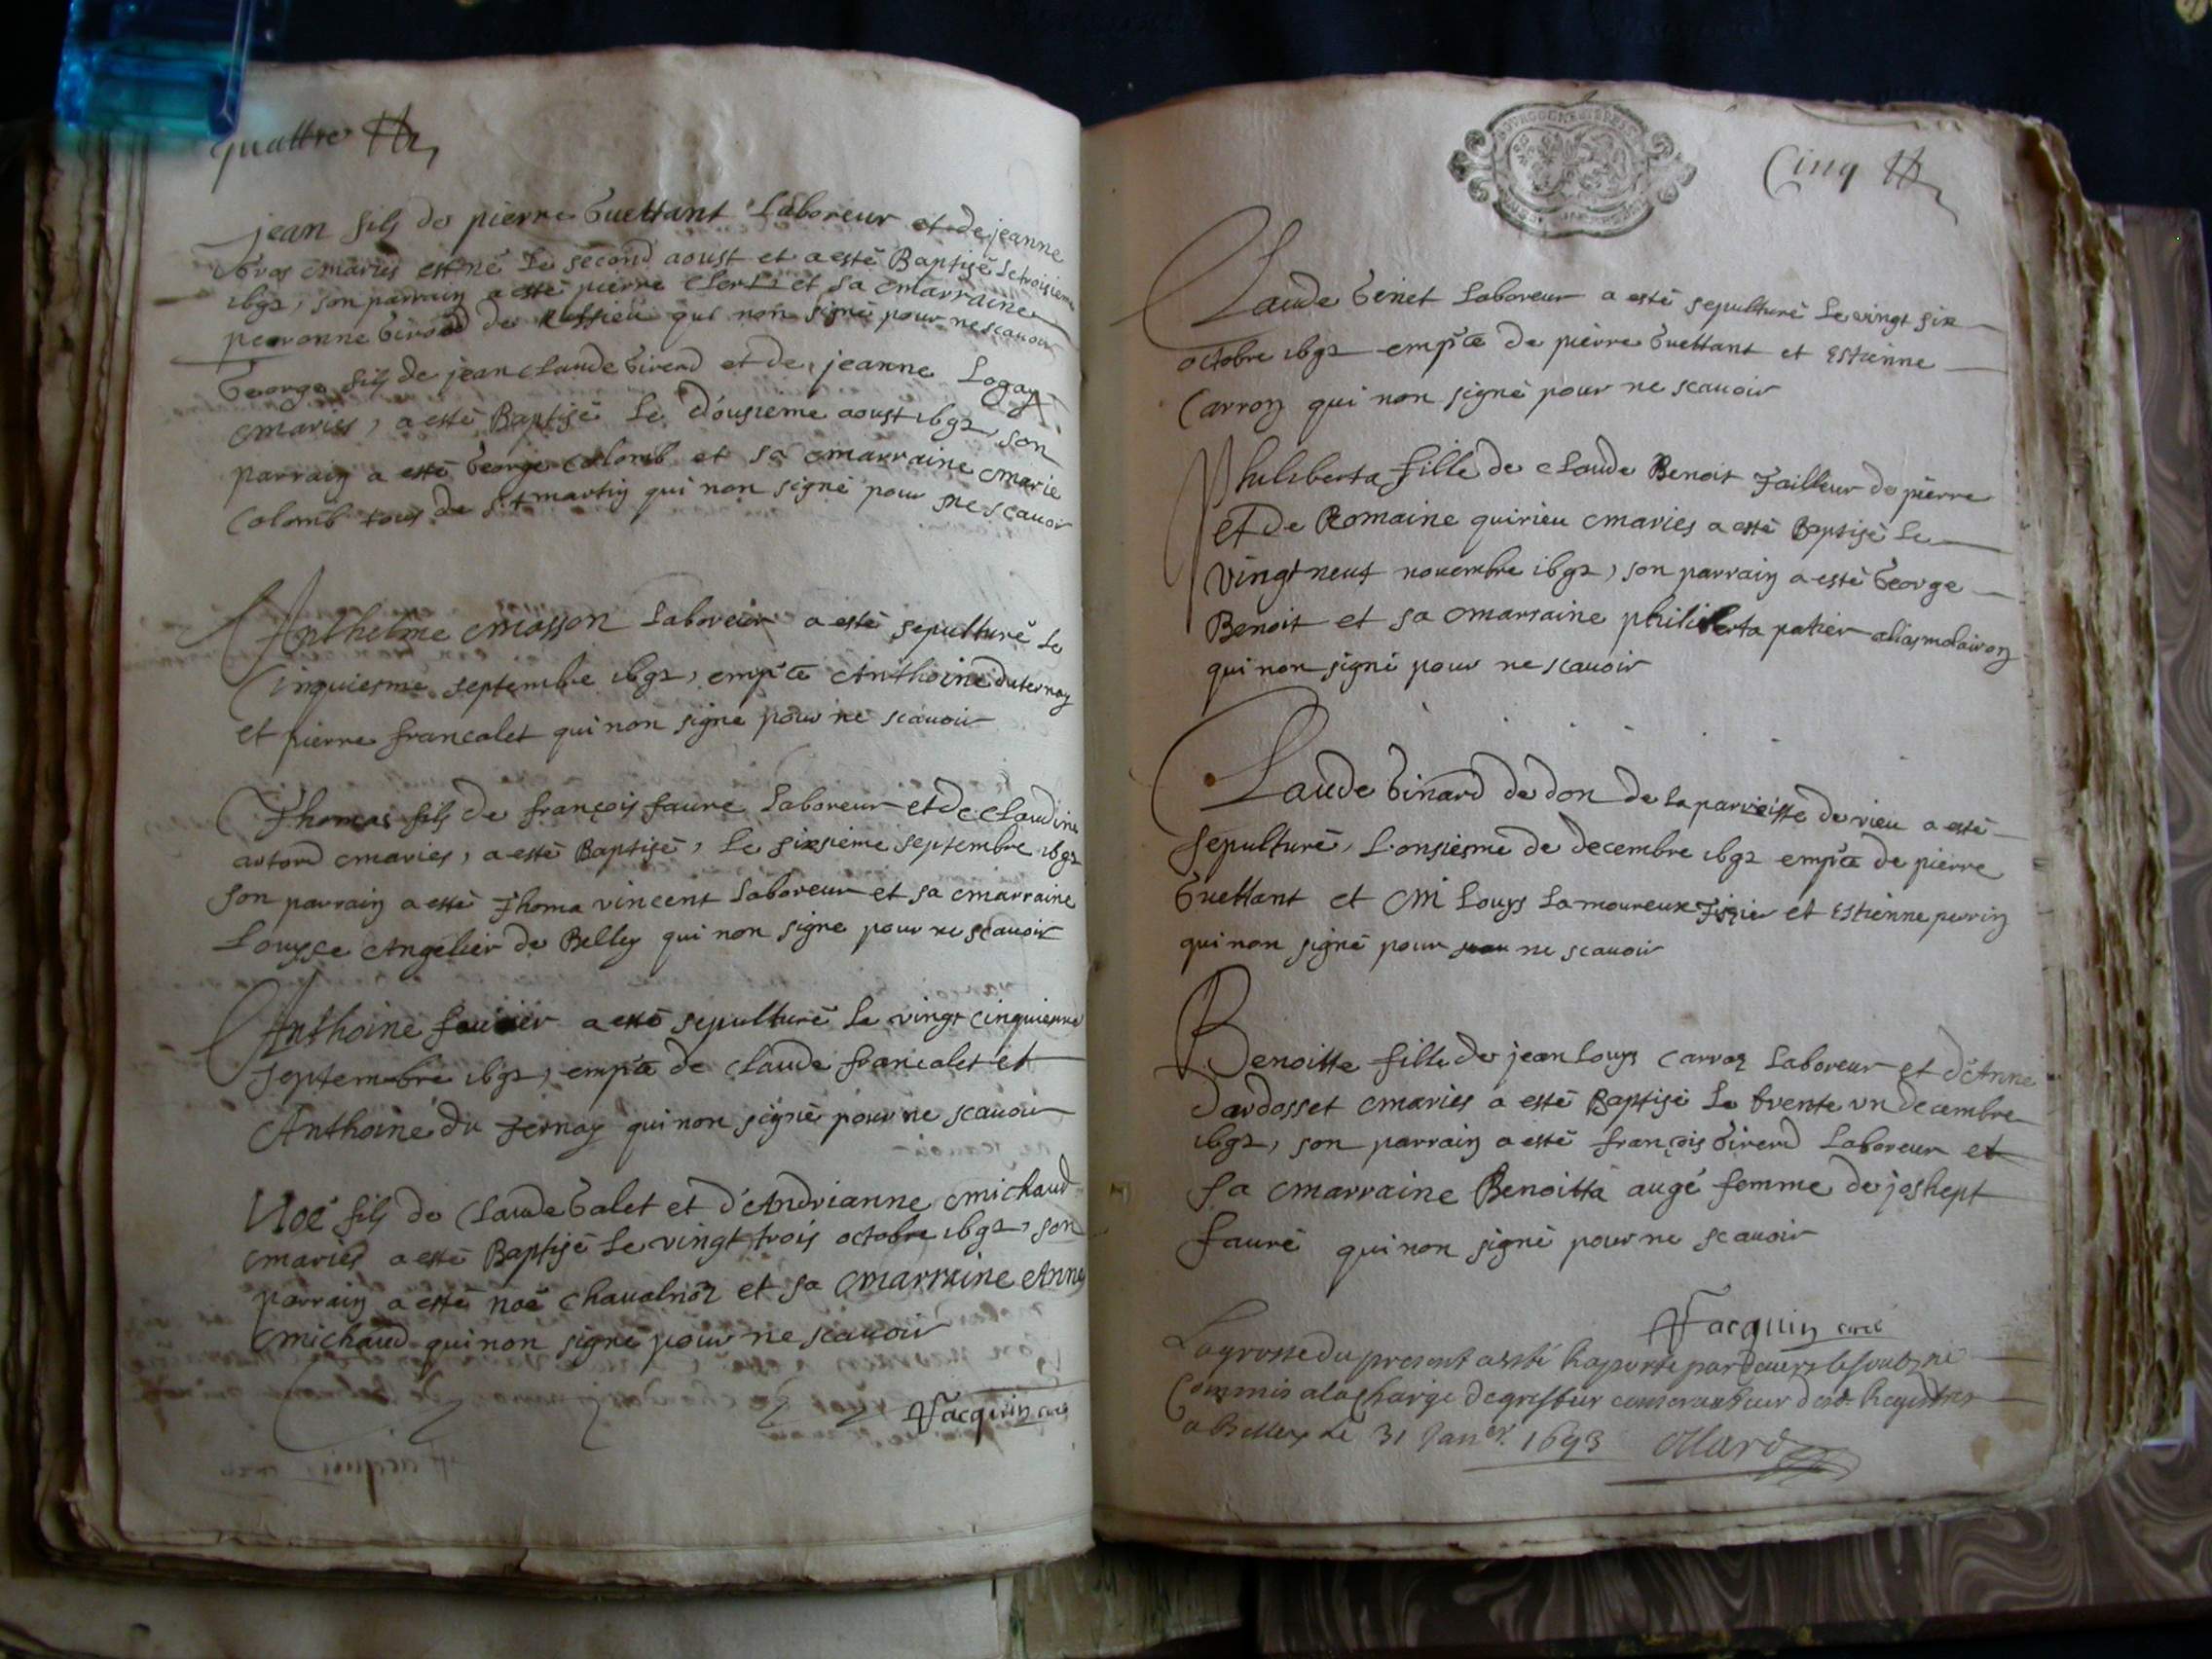 quattre
jean fils de pierre Guettant Laboreur et de jeanne
Gros mariés est né Le second aoust et a esté Baptisé Le troisieme
1692, son parrain a esté pierre Clerc et sa marraine
perronne Giroud de qui non signé pour ne scauoir
George fils de jean Claude Girerd et de jeanne Logay
mariés, a esté Baptisé Le dousieme aoust 1692, son
parrain a esté George Colomb et sa marraine marie
Colomb tous de St martin qui non signé pour ne scauoir
Anthelme masson Laboreur a esté sepulturé Le
Cinquiesme septembre 1692, empñce Anthoine duternay
et pierre francalet qui non signé pour ne scauoir
Thomas fils de françois faure Laboreur et de Claudine
autord mariés, a esté Baptisé, Le sixsieme septembre 1692
son parrain a esté Thoma vincent Laboreur et sa marraine
Louyse Angelier de Belley qui non signé pour ne scauoir
Anthoine a esté sepulturé Le vingt cinquiesme
septembre 1692, empñce de Claude francalet et
Anthoine du Ternay qui non signé pour ne scauoir
Noé fils de Claude Galet et d'Andrianne michaud
mariés a esté Baptisé Le vingt trois octobre 1692, son
parrain a esté noé et sa marraine Anne
michaud qui non signé pour ne scauoir
Jacquin curé
Cinq
Claude Genet Laboreur a esté sepulturé Le vingt six
octobre 1692 empñce de pierre Guettant et Estienne
Carron qui non signé pour ne scauoir
Philiberta fille de Claude Benoit Tailleur de pierre
et de Romaine quirieu mariés a esté Baptisé Le
vingt neuf nouembre 1692, son parrain a esté George
Benoit et sa marraine philiberta patier alias molairon
qui non signé pour ne scauoir
Claude Ginard de don de la parroisse de vieu a esté
sepulturé, L'onsiesme de decembre 1692 empñce de pierre
Guettant et M Louys Lamoureux Tissier et Estienne perrin
qui non signé pour ne scauoir
Benoitte fille de jean Louys Carron Laboreur et d'Anne
dardosset mariés a esté Baptisé Le trente un decembre
1692, son parrain a esté françois Girerd Laboreur et
sa marraine Benoitta augé femme de joshept
fauré qui non signé pour ne scauoir
Jacquin curé
La grosse du present a esté raporté par deuers le soubzné
Commis a la charge de greffier conseruateur desd. Registres
a Belley le 31 Janer. 1693